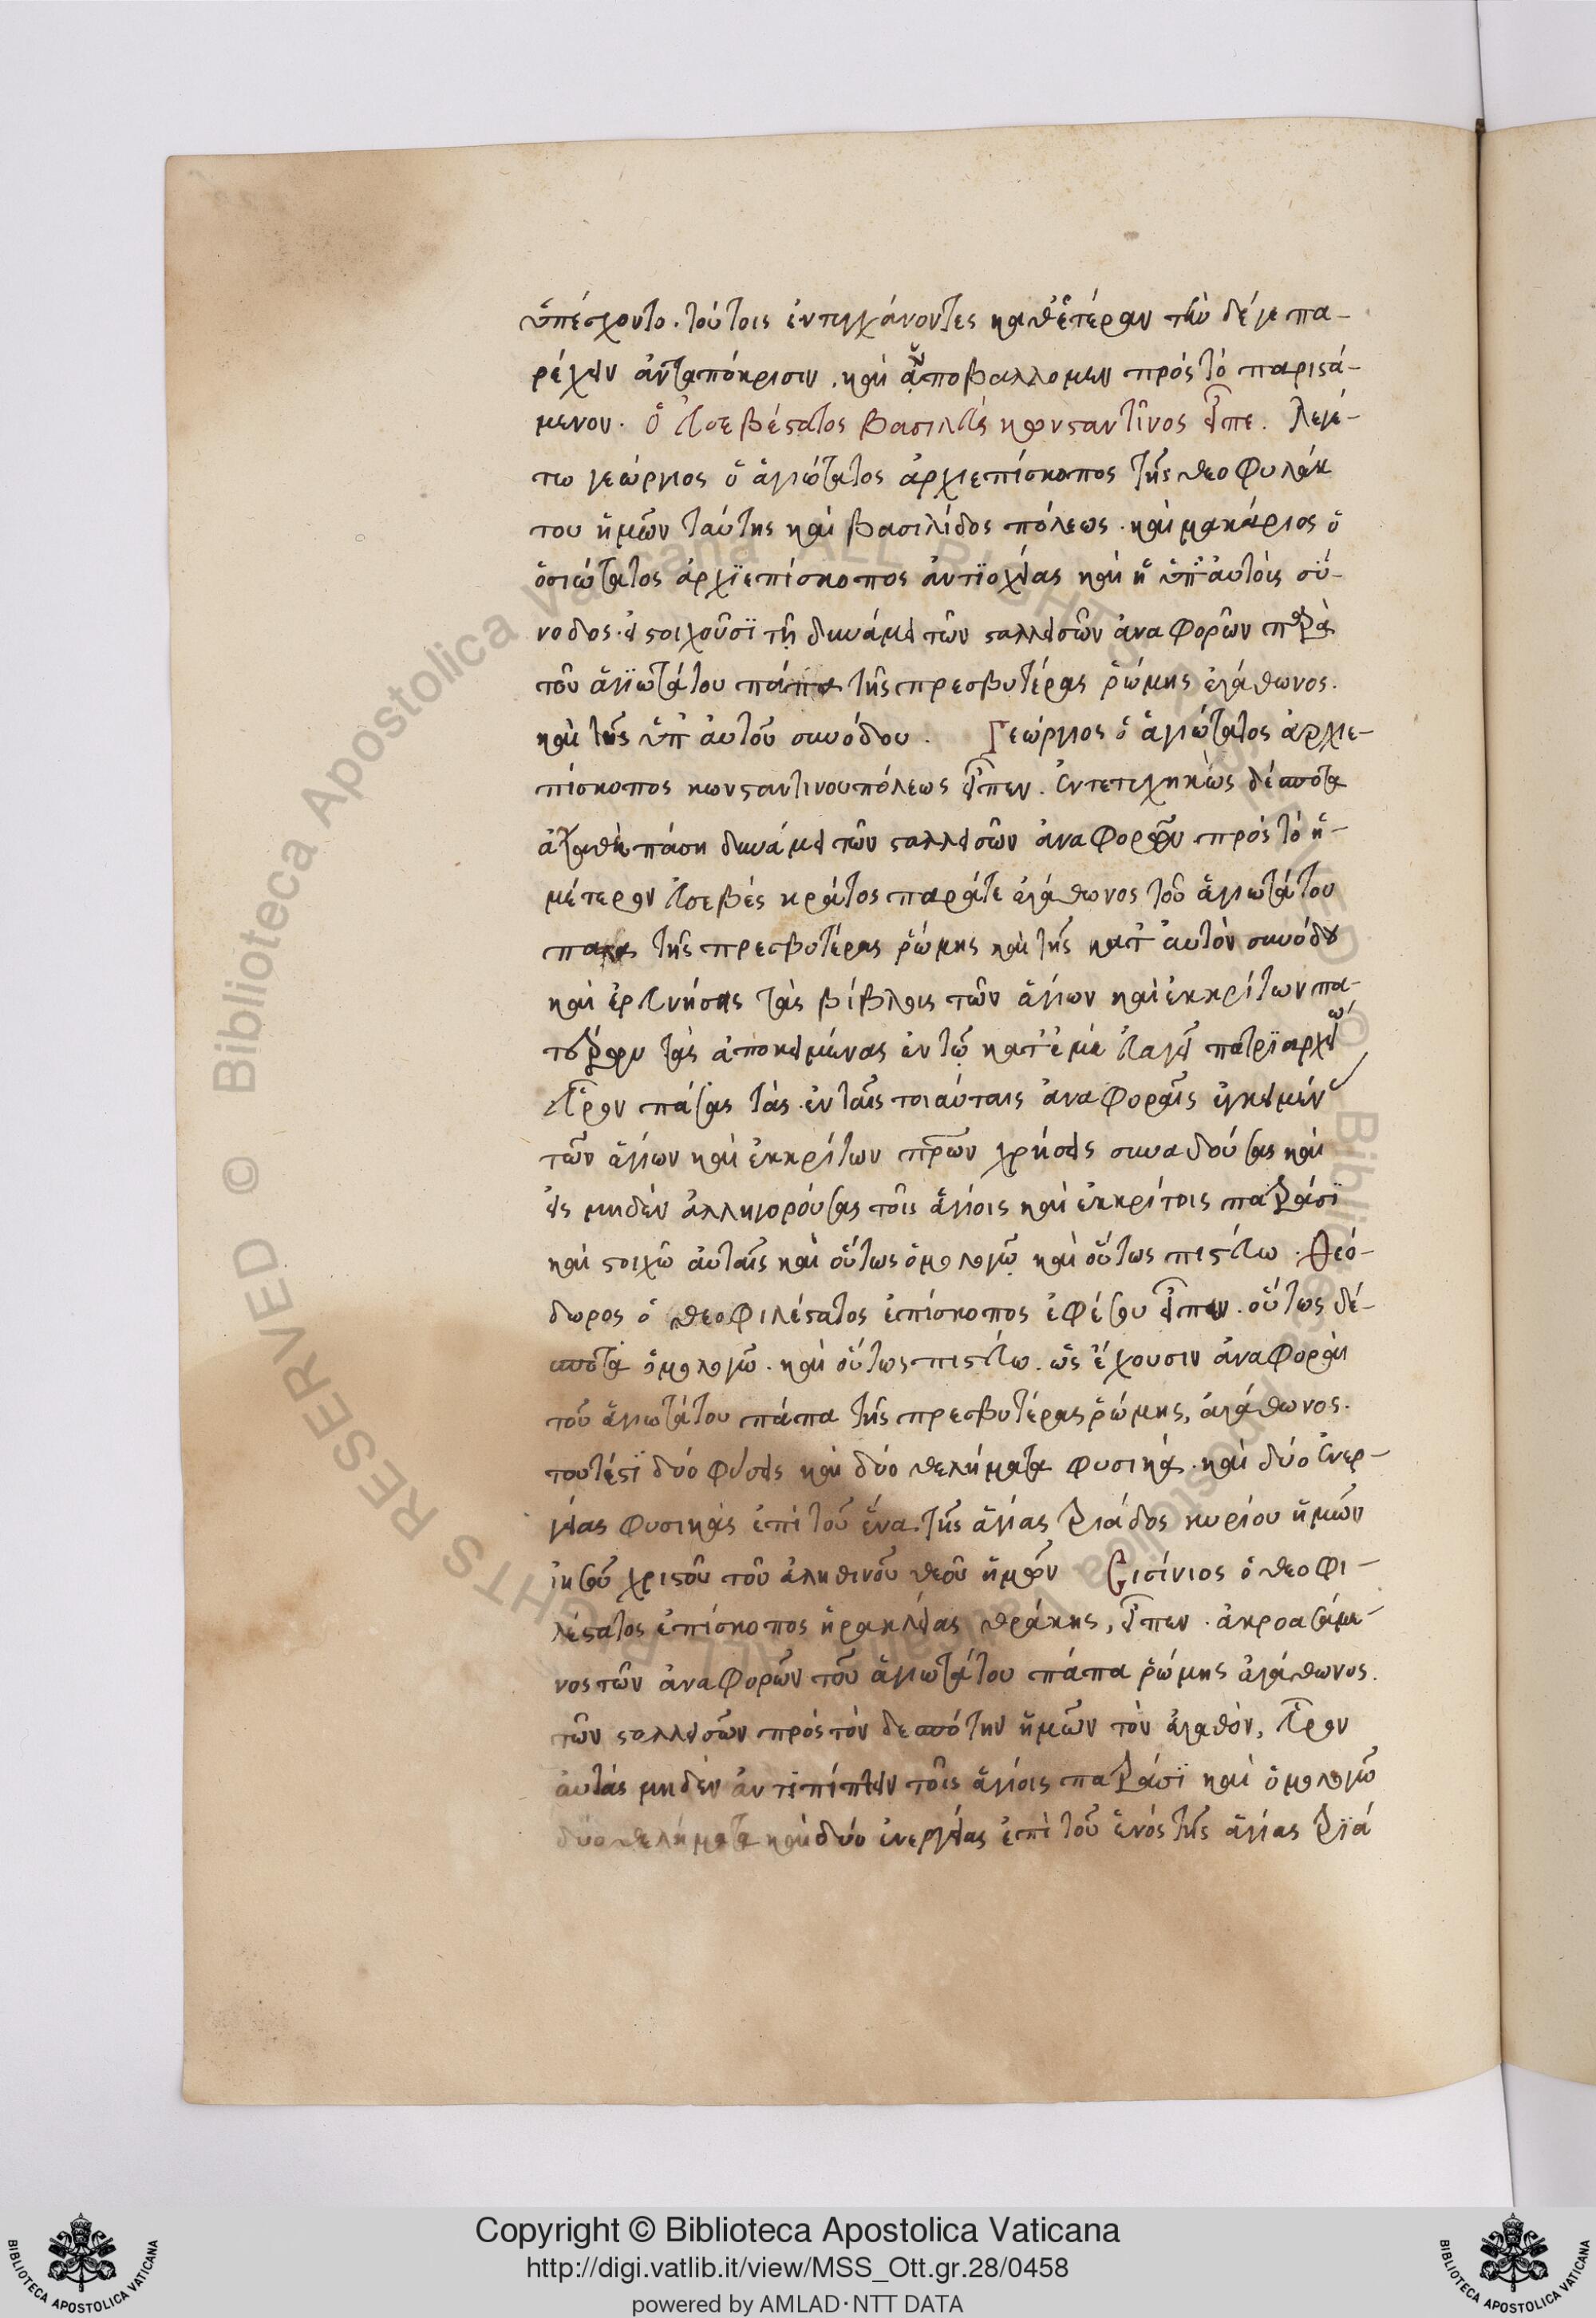 ὑπέσχοντο. τούτοις ἐντυγχάνοντες καθ ἑτέραν τὴν δέγε πα-
ρέχειν ἀνταπόκρισιν. καὶ ἀποβαλλομεν πρὸς τὸ παριστά-
μενον. ὁ εὐσεβέστατος βασιλεὺς κωνσταντῖνος εἶπε. λεγέ-
τω γεώργιος ὁ ἁγιώτατος ἀρχιεπίσκοπος τῆς θεοφυλάκ
του ἡμῶν ταύτης καὶ βασιλίδος πόλεως. καὶ μακάριος ὁ
ὁσιώτατος ἀρχϊεπίσκοπος ἀντϊοχείας καὶ ἡ ὑπ αὐτοῖς σύ-
νοδος. εἰ στοιχοῦσϊ τῇ δυνάμει τῶν σταλλεισῶν ἀναφορῶν παρὰ
τοῦ ἁγϊωτάτου πάπα τῆς πρεσβυτέρας ῥώμης ἀγάθωνος.
καὶ τῆς ὑπ αὐτοῦ συνόδου. Γεώργιος ὁ ἁγιώτατος ἀρχιε-
πίσκοπος κωνσταντινουπόλεως εἶπεν. Ἐντετυχηκὼς δέσποτα
ἀγαθὲ πάσῃ δυνάμει τῶν σταλλεισῶν ἀναφορῶν πρὸς τὸ ἡ-
μέτερον εὐσεβὲς κράτος παράτε ἀγάθωνος τοῦ ἁγιωτάτου
παπα τῆς πρεσβυτέρας ῥώμης καὶ τῆς κατ αὐτὸν συνόδου
καὶ ἐρευνήσας τὰς βίβλοις τῶν ἁγίων καὶ ἐκκρίτων πα-
τέρων τὰς ἀποκειμένας ἐν τῷ κατ ἐμὲ εὐαγεῖ πατρϊαρχείῳ
εὗρον πάσας τὰς ἐν ταῖς τοιαύταις ἀναφοραῖς ἐγκειμέν
τῶν ἁγίων καὶ ἐκκρίτων πρων χρήσεις συναδούσας καὶ
εἰς μηδὲν ἀλληγορούσας τοῖς ἁγίοις καὶ ἐκκρίτοις πατράσϊ
καὶ στοιχῶ αὐταῖς καὶ οὕτως ὁμολογῶ καὶ οὕτως πιστεύω. Θεό-
δωρος ὁ θεοφιλέστατος ἐπίσκοπος ἐφέσου εἶπεν. οὕτως δέ-
σποτα ὁμολογῶ. καὶ οὕτως πιστεύω. ὡς ἔχουσιν ἀναφοραὶ
τοῦ ἁγιωτάτου πάπα τῆς πρεσβυτέρας ῥώμης, ἀγάθωνος.
τουτέστϊ δύο φύσεις καὶ δύο θελήματα φυσικά. καὶ δύο ἐνερ-
γείας φυσικὰς ἐπὶ τοῦ ἕνα τῆς ἁγίας τριάδος κυρίου ἡμῶν
ἰησοῦ χριστοῦ τοῦ ἀληθινοῦ θεοῦ ἡμῶν Σισίνιος ὁ θεοφι-
λέστατος ἐπίσκοπος ἡρακλείας θράκης, εἶπεν. ἀκροασάμε-
νος τῶν ἀναφορῶν τοῦ ἁγιωτάτου πάπα ῥώμης ἀγάθωνος.
τῶν σταλλεισῶν πρὸς τὸν δεσπότην ἡμῶν τὸν ἀγαθὸν, εὗρον
αὐτὰς μηδὲν ἀντιπίπτειν τοῖς ἁγίοις πατράσϊ καὶ ὁμολογῶ
δύο θελήματα καὶ δύο ἐνεργείας ἐπὶ τοῦ ἑνὸς τῆς ἁγίας τρϊά
© Biblioteca Apostolica Vaticana ALL RIGHTS RESERVED
Copyright © Biblioteca Apostolica Vaticana
http://digi.vatlib.it/view/MSS_Ott.gr.28/0458
powered by AMLAD·NTT DATA
BIBLIOTECA APOSTOLICA VATICANA
BIBLIOTECA APOSTOLICA VATICANA